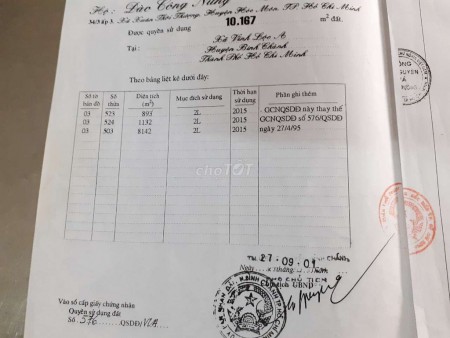 Hộ: Đào Công Năng
Xã Xuân Thới Thượng, Huyện Hóc Môn, TP. Hồ Chí Minh
Được quyền sử dụng 10.167 m² đất.
Tại: Xã Vĩnh Lộc A
Huyện Bình Chánh
Thành Phố Hồ Chí Minh
Theo bảng liệt kê dưới đây:
Số tờ bản đồ Số thửa Diện tích (m²) Mục đích sử dụng Thời hạn sử dụng Phần ghi thêm
03 523 893 2L 2015 GCNQSDĐ này thay thế
03 524 1132 2L 2015 GCNQSDĐ số 576/QSDĐ
03 503 8142 2L 2015 ngày 27/4/95
choTỐT
27-09-01
Ngày
CHỦ TỊCH
UBND
Vào sổ cấp giấy chứng nhận
Quyền sử dụng đất
Số 576 QSDĐ/VLA